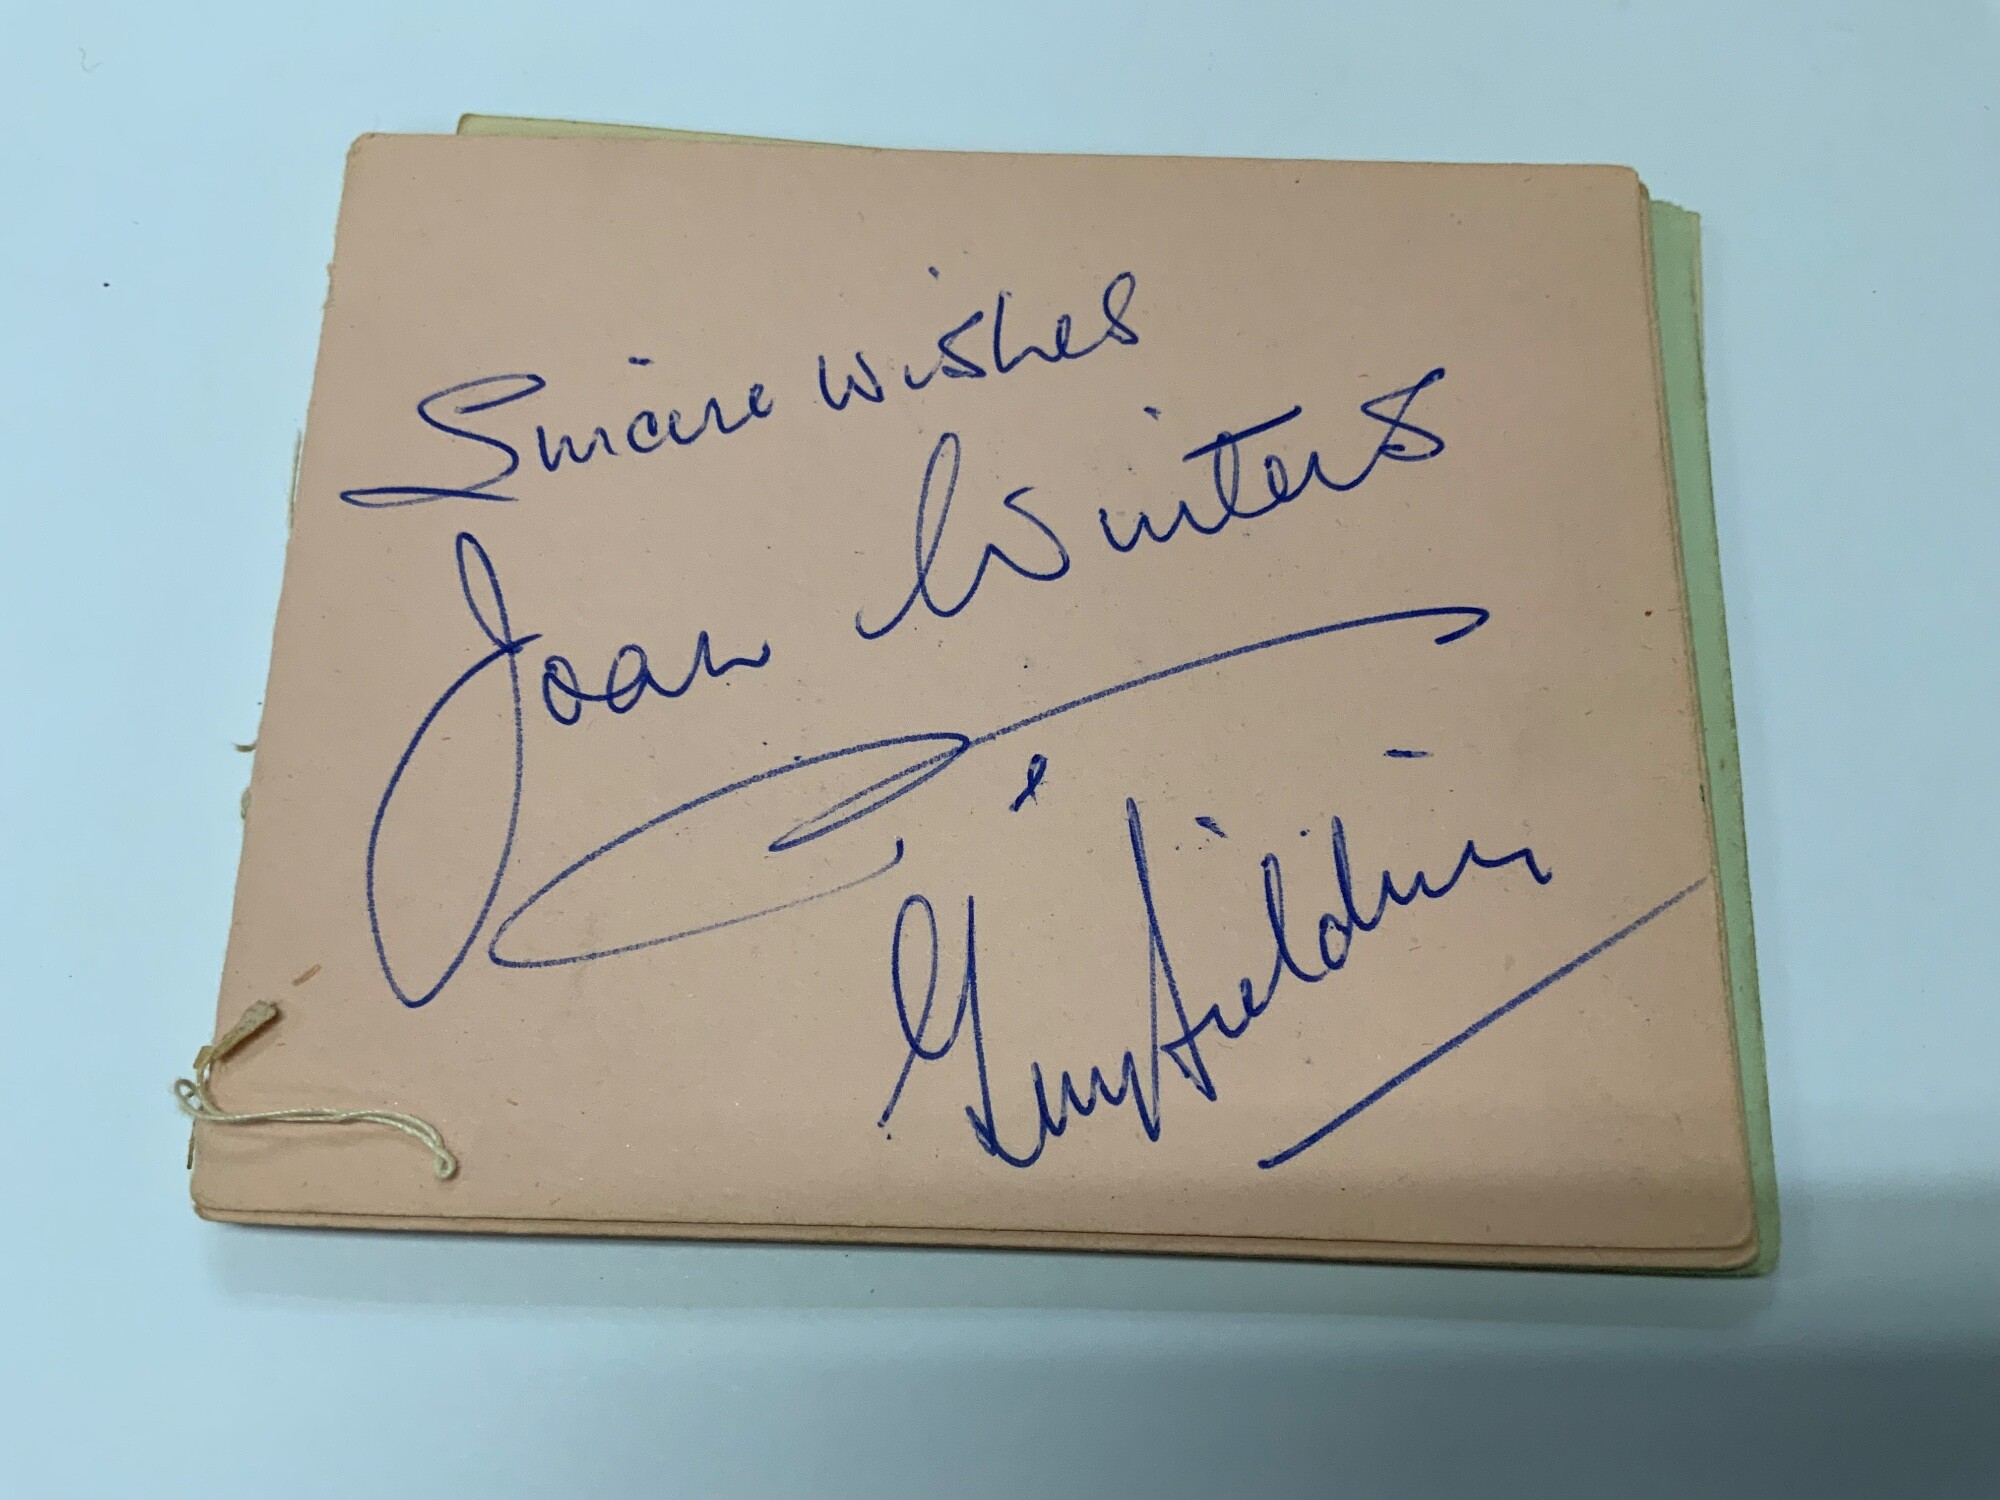 Sincere wishes
Joan Winters
&
Guy Fielding